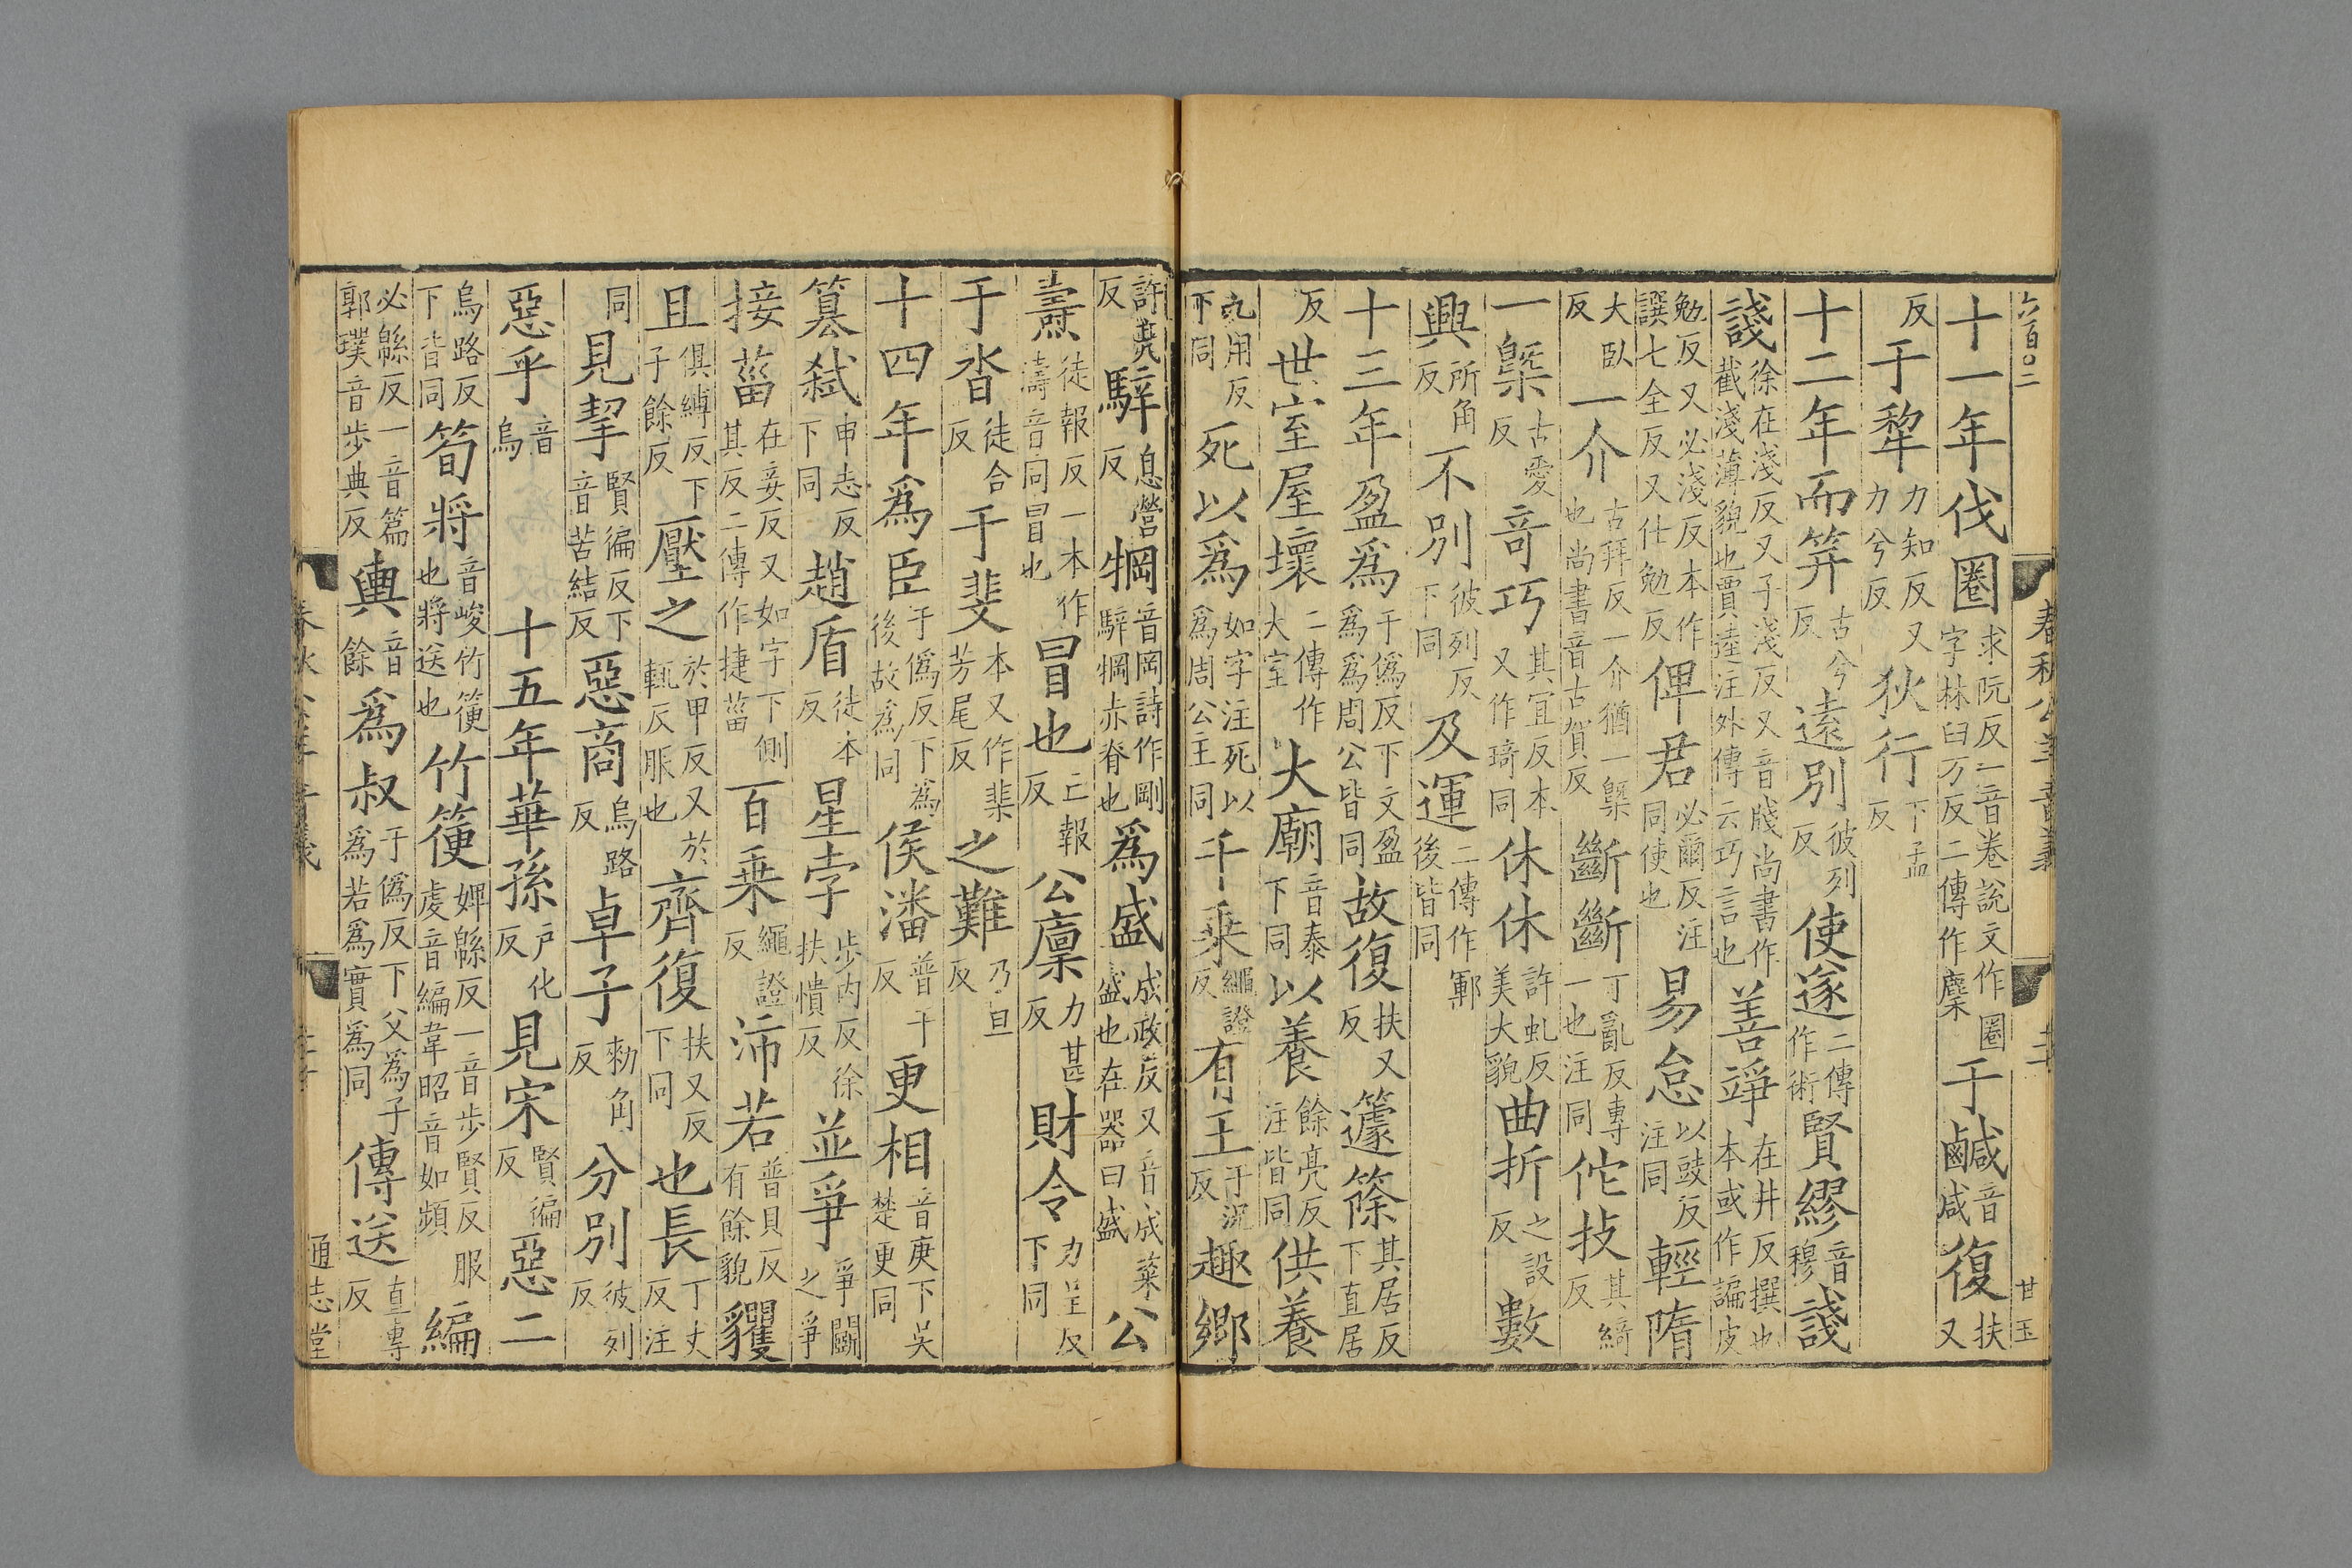 六百〇二　春秋公羊音義　甘玉
十一年伐圈求阮反一音卷說文作圈字林臼万反二傳作麇于鹹音咸復扶又
反于犂力知反又力兮反狄行下孟反
十二年而筓古兮反遠別彼列反使遂二傳作術賢繆音穆諓
諓徐在淺反又子淺反又音牋尚書作截淺薄貌也賈逵注外傳云巧言也善竫在井反撰也本或作諞皮
勉反又必淺反本作譔七全反又仕勉反俾君必爾反注同使也易怠以豉反注同輕隋
大臥反一介古拜反一介猶一槩也尚書音古賀反斷斷丁亂反專一也注同佗技其綺反
一槩古愛反奇巧其宜反本又作琦同休休許虬反美大貌曲折之設反數
興所角反不別彼列反下同及運二傳作鄆後皆同
十三年盈爲于僞反下文盈爲爲周公皆同故復扶又反籧篨其居反下直居
反世室屋壞二傳作大室大廟音泰下同以養餘亮反注皆同供養
九用反下同死以爲如字注死以爲周公主同千乘繩證反有王于況反趣鄉
許亮反騂息營反犅音岡詩作剛騂犅赤脊也爲盛成政反又音成粢盛也在器曰盛公
燾徒報反一本作濤音同冒也冒也亡報反公廩力甚反財令力呈反下同
于沓徒合反于斐本又作棐芳尾反之難乃旦反
十四年爲臣于僞反下爲後故爲同侯潘普干反更相音庚下吳楚更同
簒弒申志反下同趙盾徒本反星孛步內反徐扶憒反並爭爭鬬之爭
接菑在妾反又如字下側其反二傳作捷菑百乘繩證反沛若普貝反有餘貌貜
且俱縛反下子餘反壓之於甲反又於輒反服也齊復扶又反下同也長丁丈反注
同見挈賢徧反下音苦結反惡商烏路反卓子勑角反分別彼列反
惡乎音烏　十五年華孫戶化反見宋賢徧反惡二
烏路反下皆同筍將音峻竹箯也將送也竹箯婢緜反一音步賢反服虔音編韋昭音如頻編
必緜反一音篇郭璞音步典反輿音餘爲叔于僞反下父爲子爲若爲實爲同傳送直專反
春秋公羊音義　通志堂